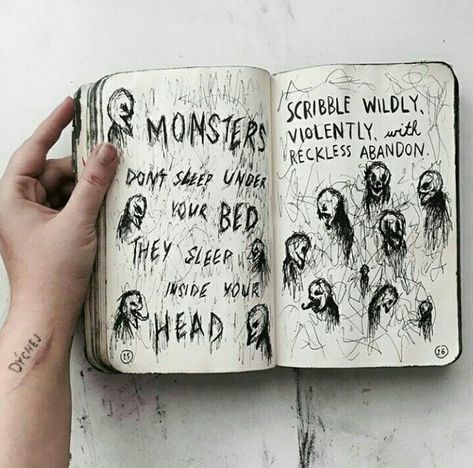 MONSTERS
DON'T SLEEP UNDER
YOUR BED
THEY SLEEP
INSIDE YOUR
HEAD
25
SCRIBBLE WILDLY,
VIOLENTLY, with
RECKLESS ABANDON.
26